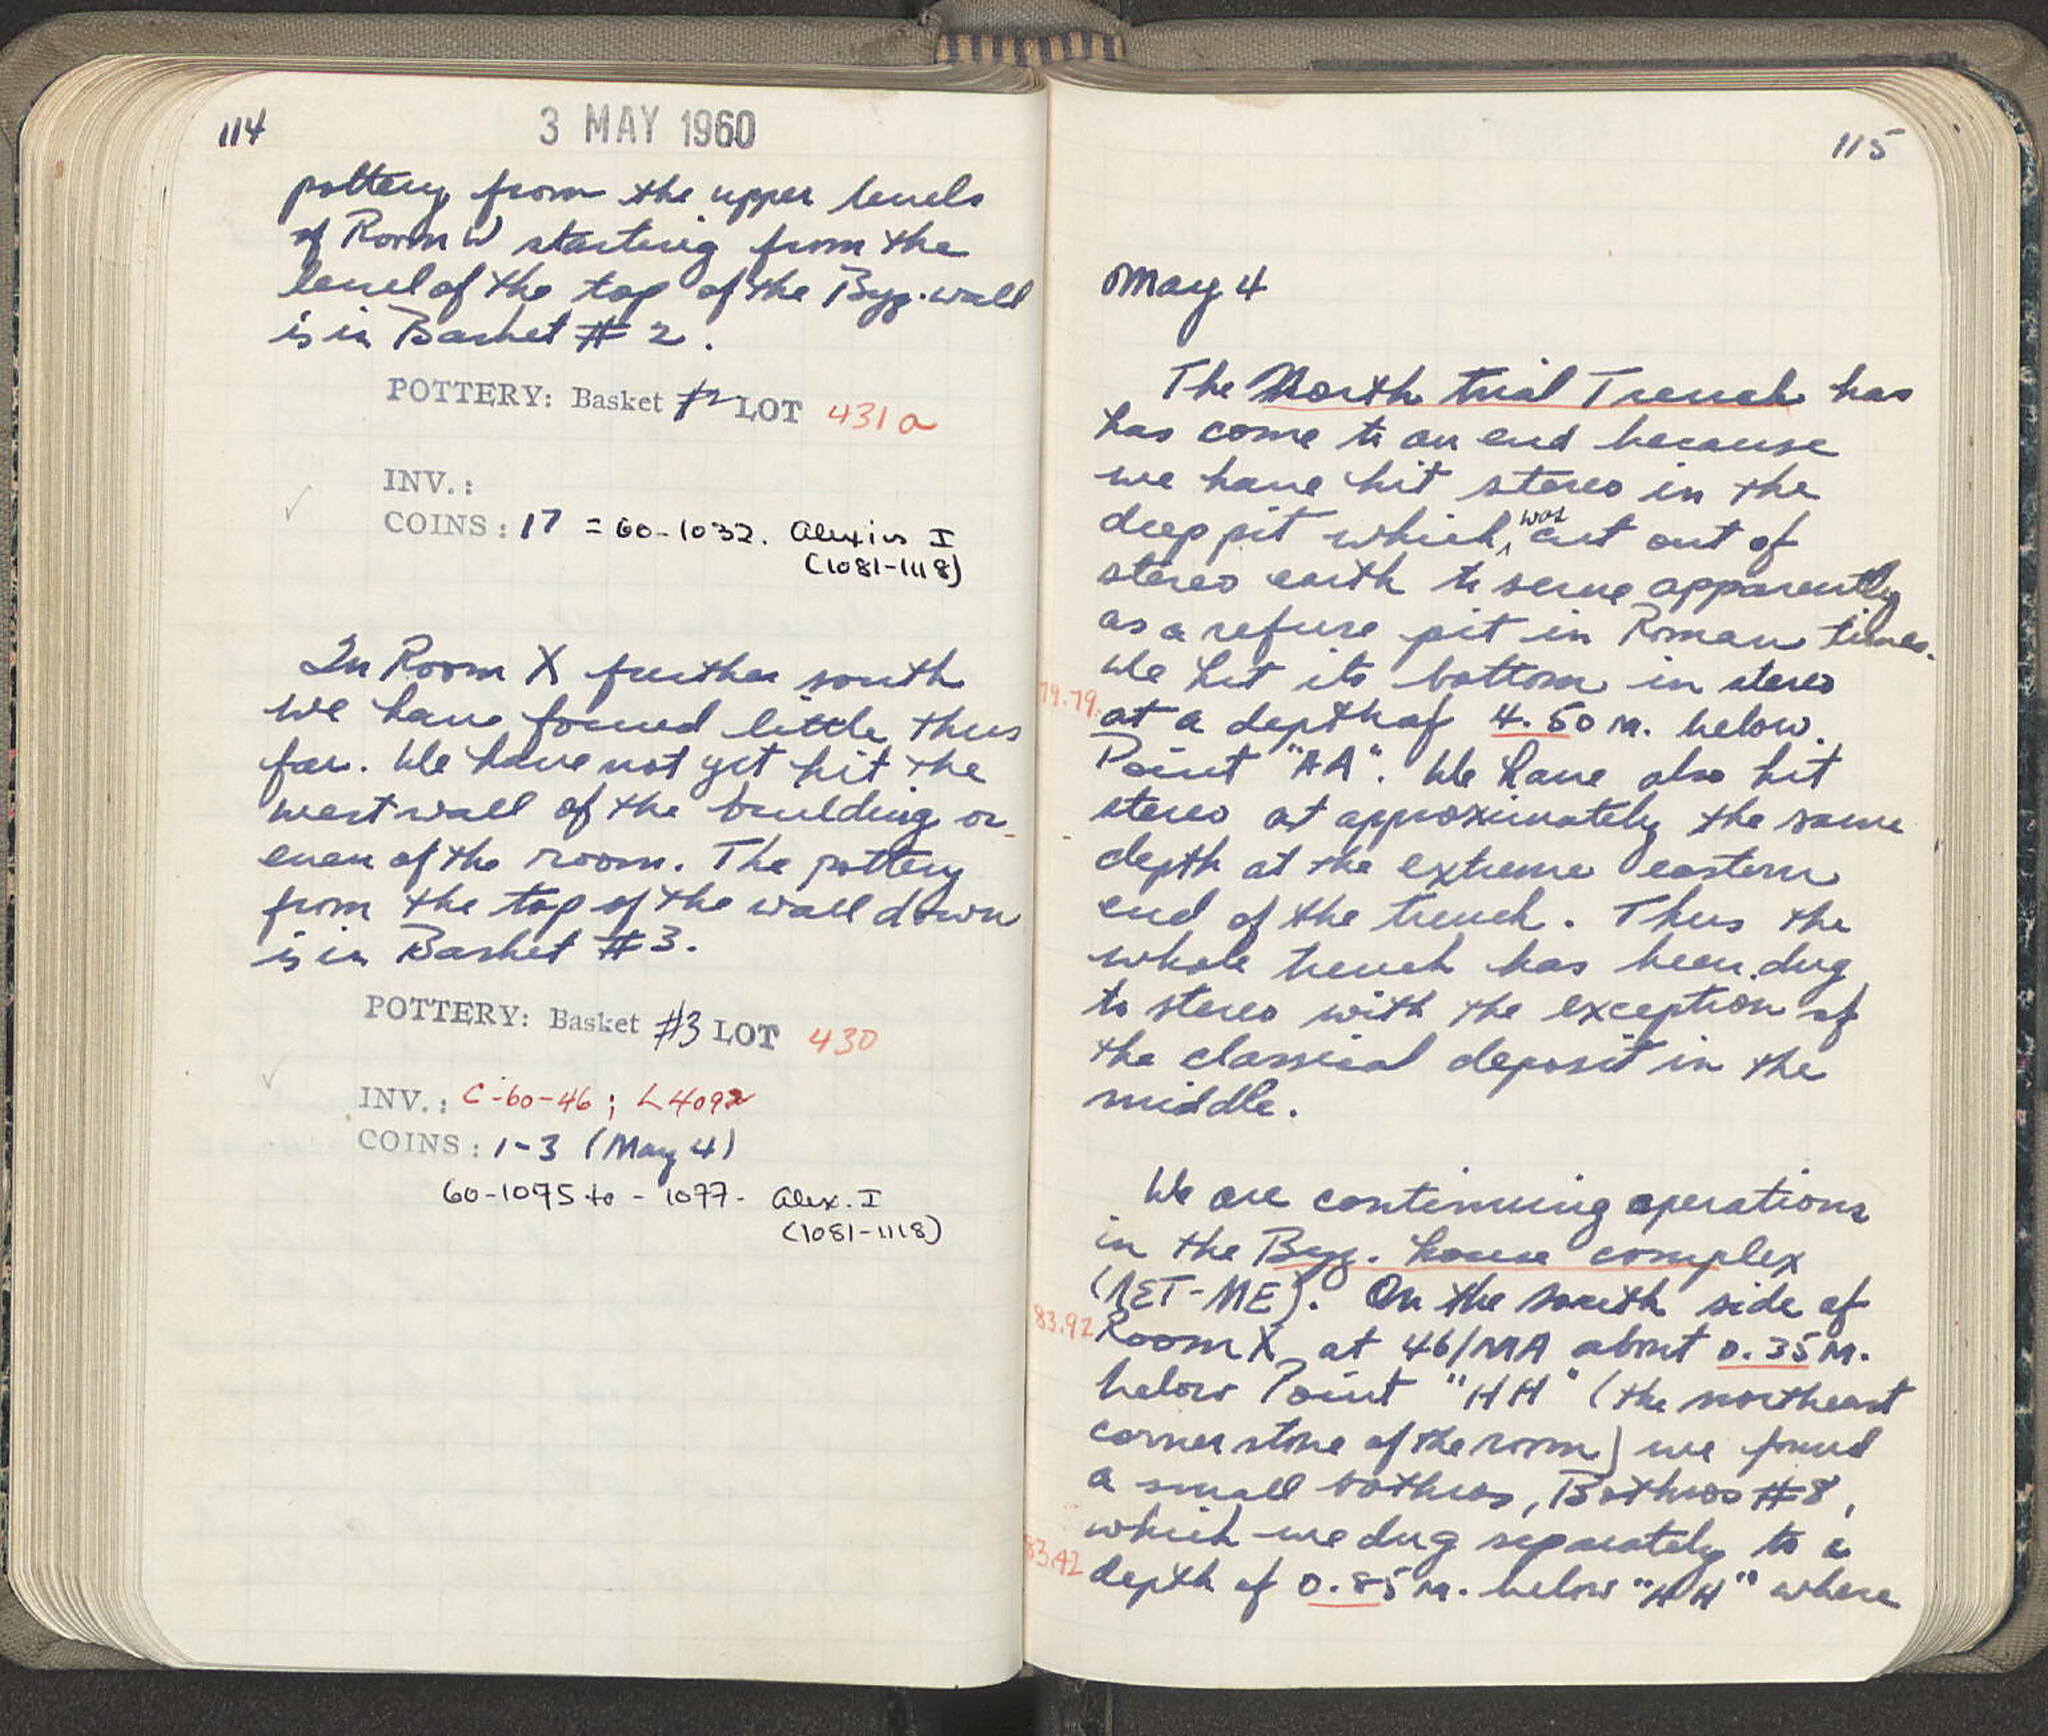 114
3 MAY 1960
pottery from the upper levels
of Room W starting from the
level of the top of the Byz. wall
is in Basket # 2.
POTTERY: Basket #2 LOT 431a
INV.:
COINS: 17 = 60-1032. Alexius I
(1081-1118)
In Room X further south
we have found little thus
far. We have not yet hit the
west wall of the building or
even of the room. The pottery
from the top of the wall down
is in Basket #3.
POTTERY: Basket #3 LOT 430
INV.: C-60-46; L4092
COINS: 1-3 (May 4)
60-1075 to -1077- Alex. I
(1081-1118)
115
May 4
The North trial Trench has
has come to an end because
we have hit stereo in the
deep pit which was cut out of
stereo earth to serve apparently
as a refuse pit in Roman times.
We hit its bottom in stereo
79.79. at a depth of 4.50 m. below
Point "AA". We have also hit
stereo at approximately the same
depth at the extreme eastern
end of the trench. Thus the
whole trench has been dug
to stereo with the exception of
the classical deposit in the
middle.
We are continuing operations
in the Byz. house complex
(NET-ME). On the south side of
83.92 Room X at 46/MA about 0.35 M.
below Point "HH" (the northeast
corner stone of the room) we found
a small bothros, Bothros #8,
which we dug separately to a
83.42 depth of 0.85 m. below "HH" where